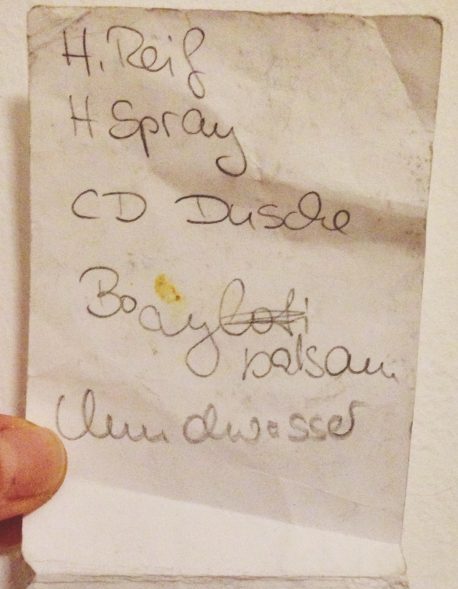 H. Reif
H Spray
CD Dusche
Bodyloti
balsam
Mundwasser